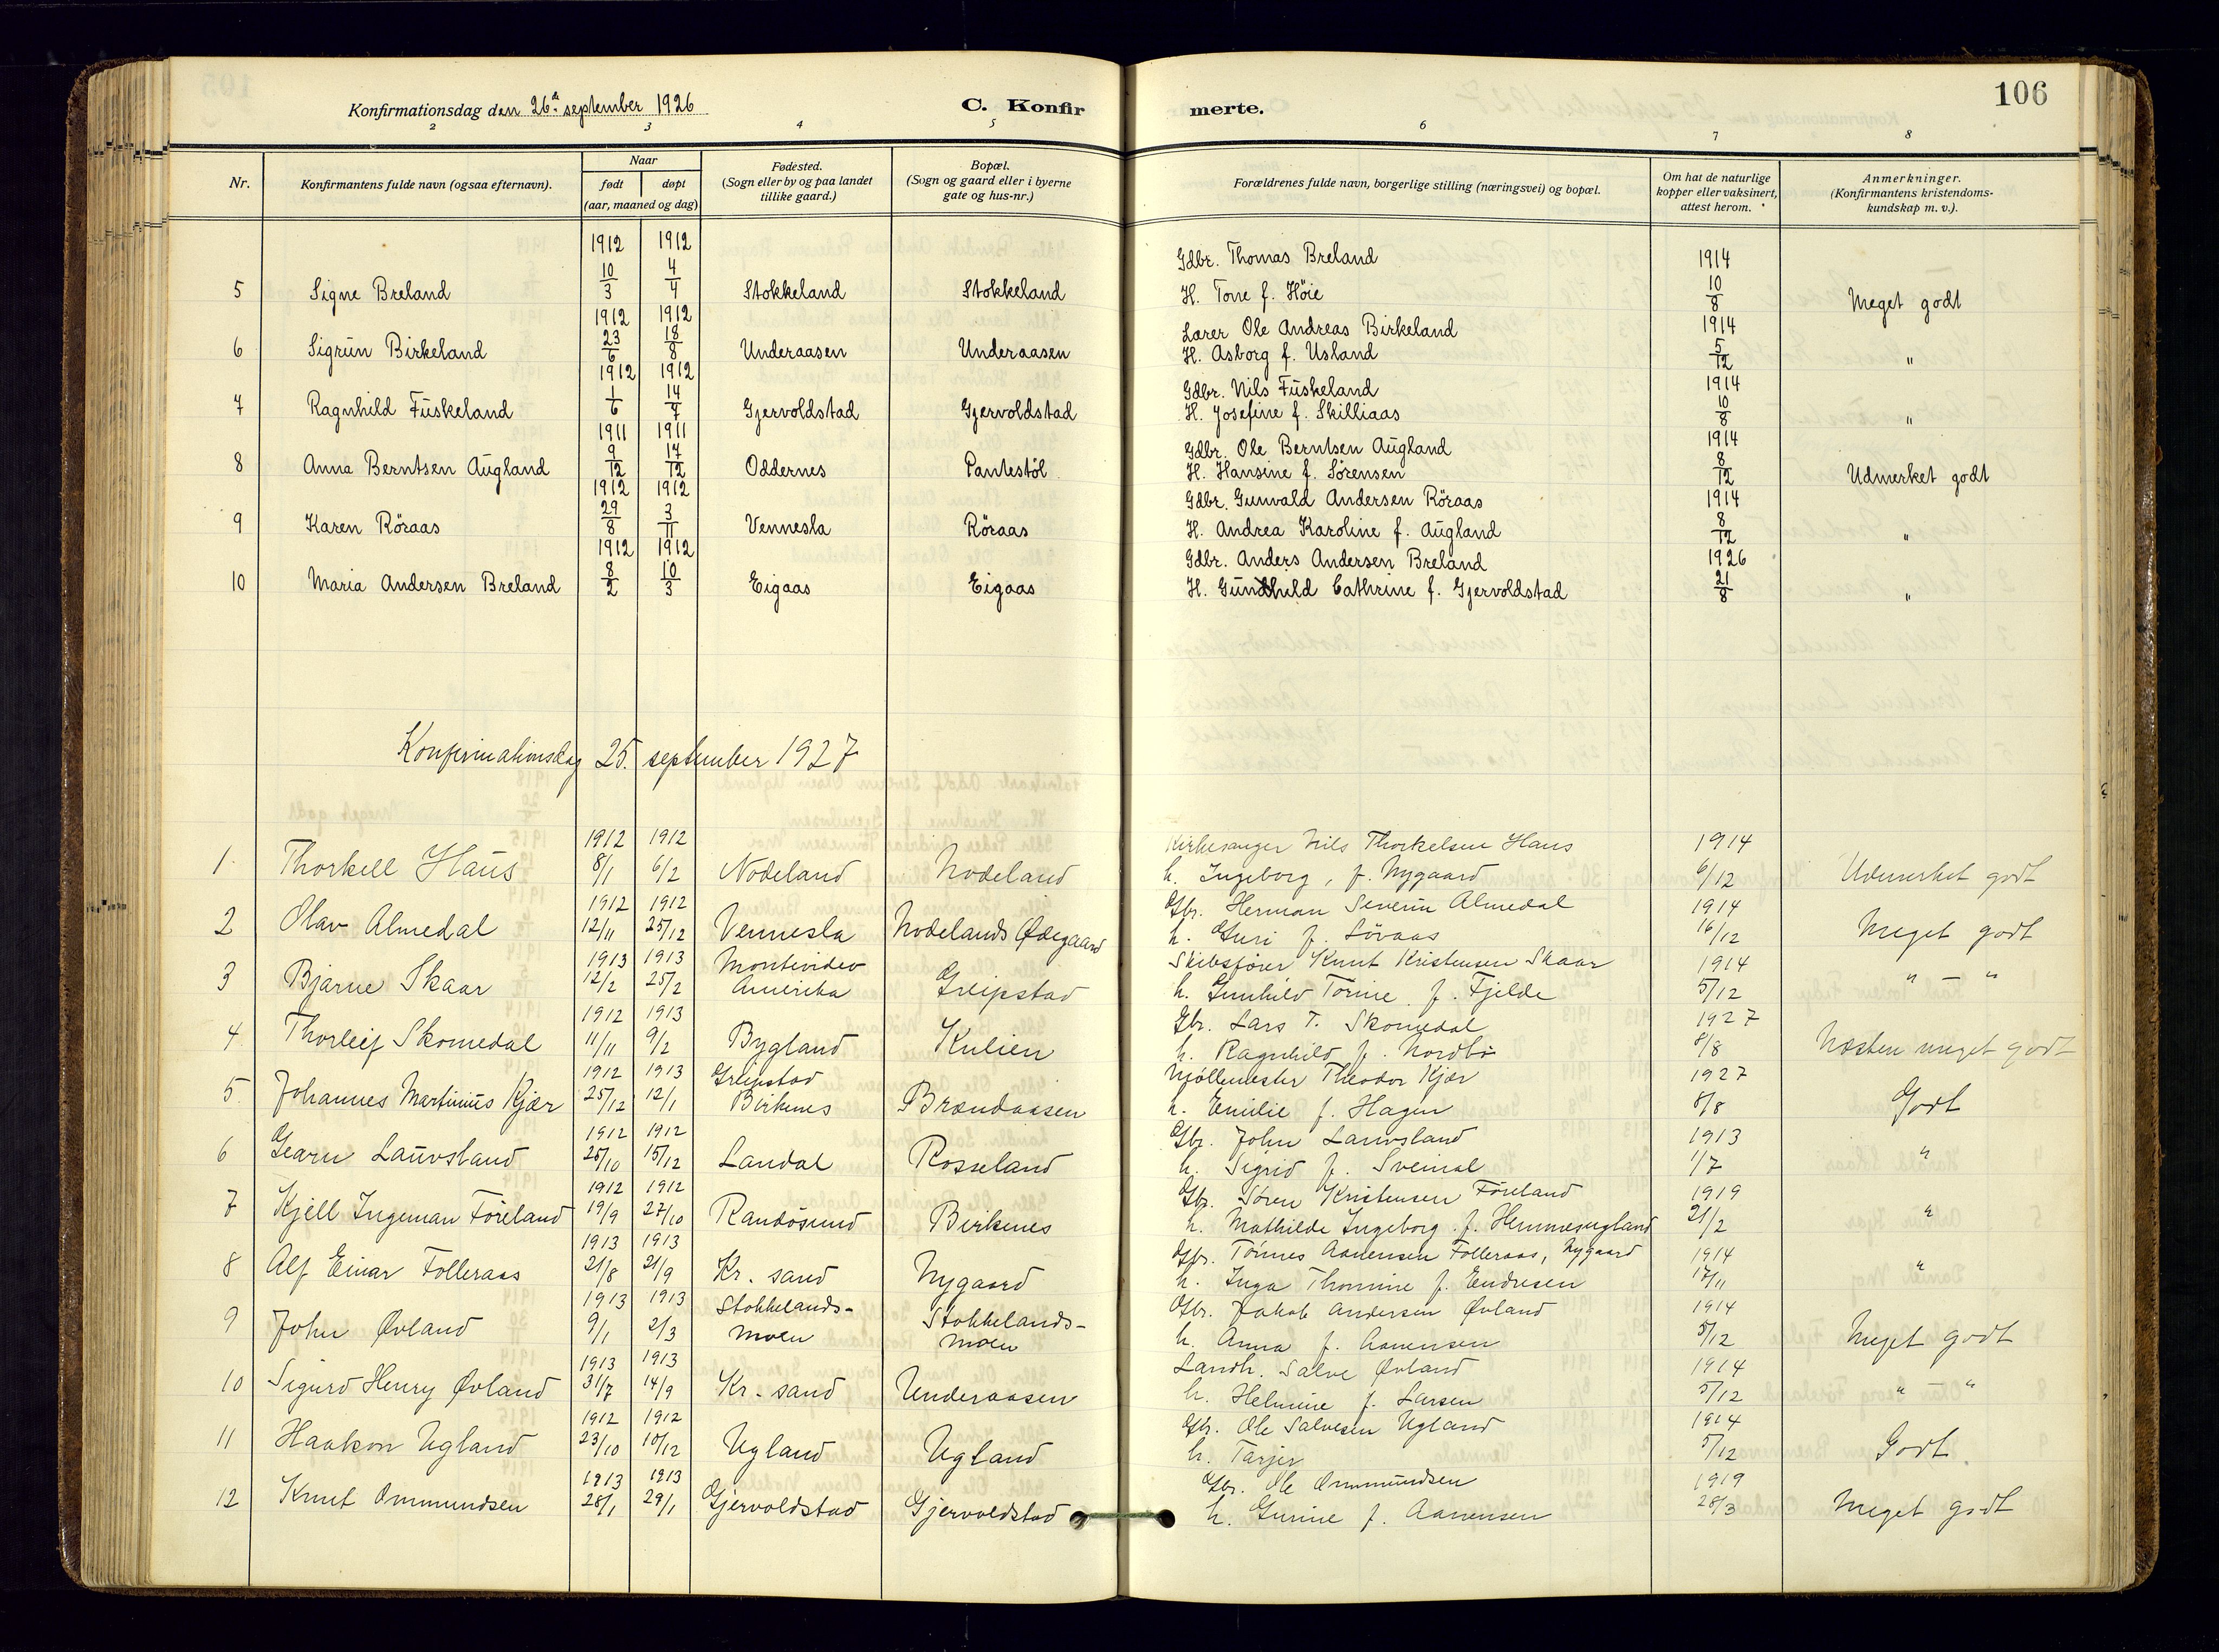 Konfirmationsdag den 26de september 1926
C. Konfirmerte.
106
2 3 4 5 6 7 8
Nr. Konfirmantens fulde navn (ogsaa efternavn). Naar født døpt (aar, maaned og dag) Fødested. (Sogn eller by og paa landet tillike gaard.) Bopæl. (Sogn og gaard eller i byerne gate og hus-nr.) Forældrenes fulde navn, borgerlige stilling (næringsvei) og bopæl. Om hat de naturlige kopper eller vaksinert, attest herom. Anmerkninger. (Konfirmantens kristendomskundskap m. v.).
1912 1912 Gdbr. Thomas Breland 1914
5 Signe Breland 10/3 4/4 Stokkeland Stokkeland H. Tone f. Höie 10/8 Meget godt
1912 1912 Lærer Ole Andreas Birkeland 1914
6 Sigrün Birkeland 23/6 18/8 Underaasen Underaasen H. Asborg f. Usland 5/12 "
1912 1912 Gdbr. Nils Füskeland 1914
7 Ragnhild Füskeland 1/6 14/7 Gjervoldstad Gjervoldstad H. Josefine f. Skilliaas 10/8 "
1911 1911 Gdbr. Ole Berntsen Aügland 1914
8 Anna Berntsen Aügland 9/12 17/12 Oddernes Pantestöl H. Hansine f. Sörensen 8/12 Udmerket godt
1912 1912 Gdbr. Gunvald Andersen Röraas 1914
9 Karen Röraas 29/8 3/11 Vennesla Röraas H. Andrea Karoline f. Aügland 8/12 "
1912 1912 Gdbr. Anders Andersen Breland 1926
10 Maria Andersen Breland 8/2 10/3 Eigaas Eigaas H. Günhild Cathrine f. Gjervoldstad 21/8 "
Konfirmationsdag 25. september 1927
1912 1912 Kirkesanger Nils Thorkelsen Haus 1914
1. Thorkell Haüs 8/1 6/2 Nodeland Nodeland h. Ingeborg, f. Nygaard 6/12 Udmerket godt
1912 1912 Gbr. Herman Severin Almedal 1914
2 Olav Almedal 12/11 25/12 Vennesla Nodelands Ødegaard h. Guri f. Lövaas 16/12 Meget godt
1913 1913 Montevideo Skibsfører Knut Kristensen Skaar 1914
3 Bjarne Skaar 12/2 25/2 Amerika Greipstad h. Gunhild Tomine f. Fjelde 5/12 " – "
1912 1913 Gbr. Lars T. Skomedal 1927
4 Thorleif Skomedal 11/11 9/2 Bygland Kulien h. Ragnhild f. Nordbö 8/8 Næsten meget godt
1912 1913 Greipstad Møllemester Theodor Kjær 1927
5. Johannes Martinius Kjær 25/12 12/1 Birkenes Brændaasen h. Emilie f. Hagen 8/8 Godt
1912 1912 Gbr. John Lauvsland 1913
6 Gearu Laüvsland 25/10 15/12 Landal Rosseland h. Sigrid f. Sveinal 1/7 "
1912 1912 Gbr. Søren Kristensen Föreland 1919
7 Kjell Ingeman Föreland 19/9 27/10 Randösund Birkenes h. Mathilde Ingeborg f. Hemmesugland 21/2 "
1913 1913 Gbr. Tönnes Aanensen Folleraas, Nygaard 1914
8 Alf Einar Folleraas 21/8 21/9 Kr. sand Nygaard h. Inga Thomine f. Endresen 17/11 "
1913 1913 Stokkelands- Gbr. Jakob Andersen Øvland 1914
9 John Øvland 9/1 2/3 moen Stokkelands-moen h. Anna f. Aanensen 5/12 Meget godt
1913 1913 Landh. Salve Øvland 1914
10 Sigurd Henry Øvland 31/7 14/9 Kr. sand Underaasen h. Helmine f. Larsen 5/12 " – "
1912 1912 Gbr. Ole Salvesen Ugland 1914
11 Haakon Ugland 23/10 10/12 Ugland Ugland h. Tarjer 5/12 Godt
1913 1913 Gbr. Ole Ommundsen 1919
12 Knut Ommundsen 28/1 29/1 Gjervoldstad Gjervoldstad h. Gurine f. Aanensen 28/3 Meget godt